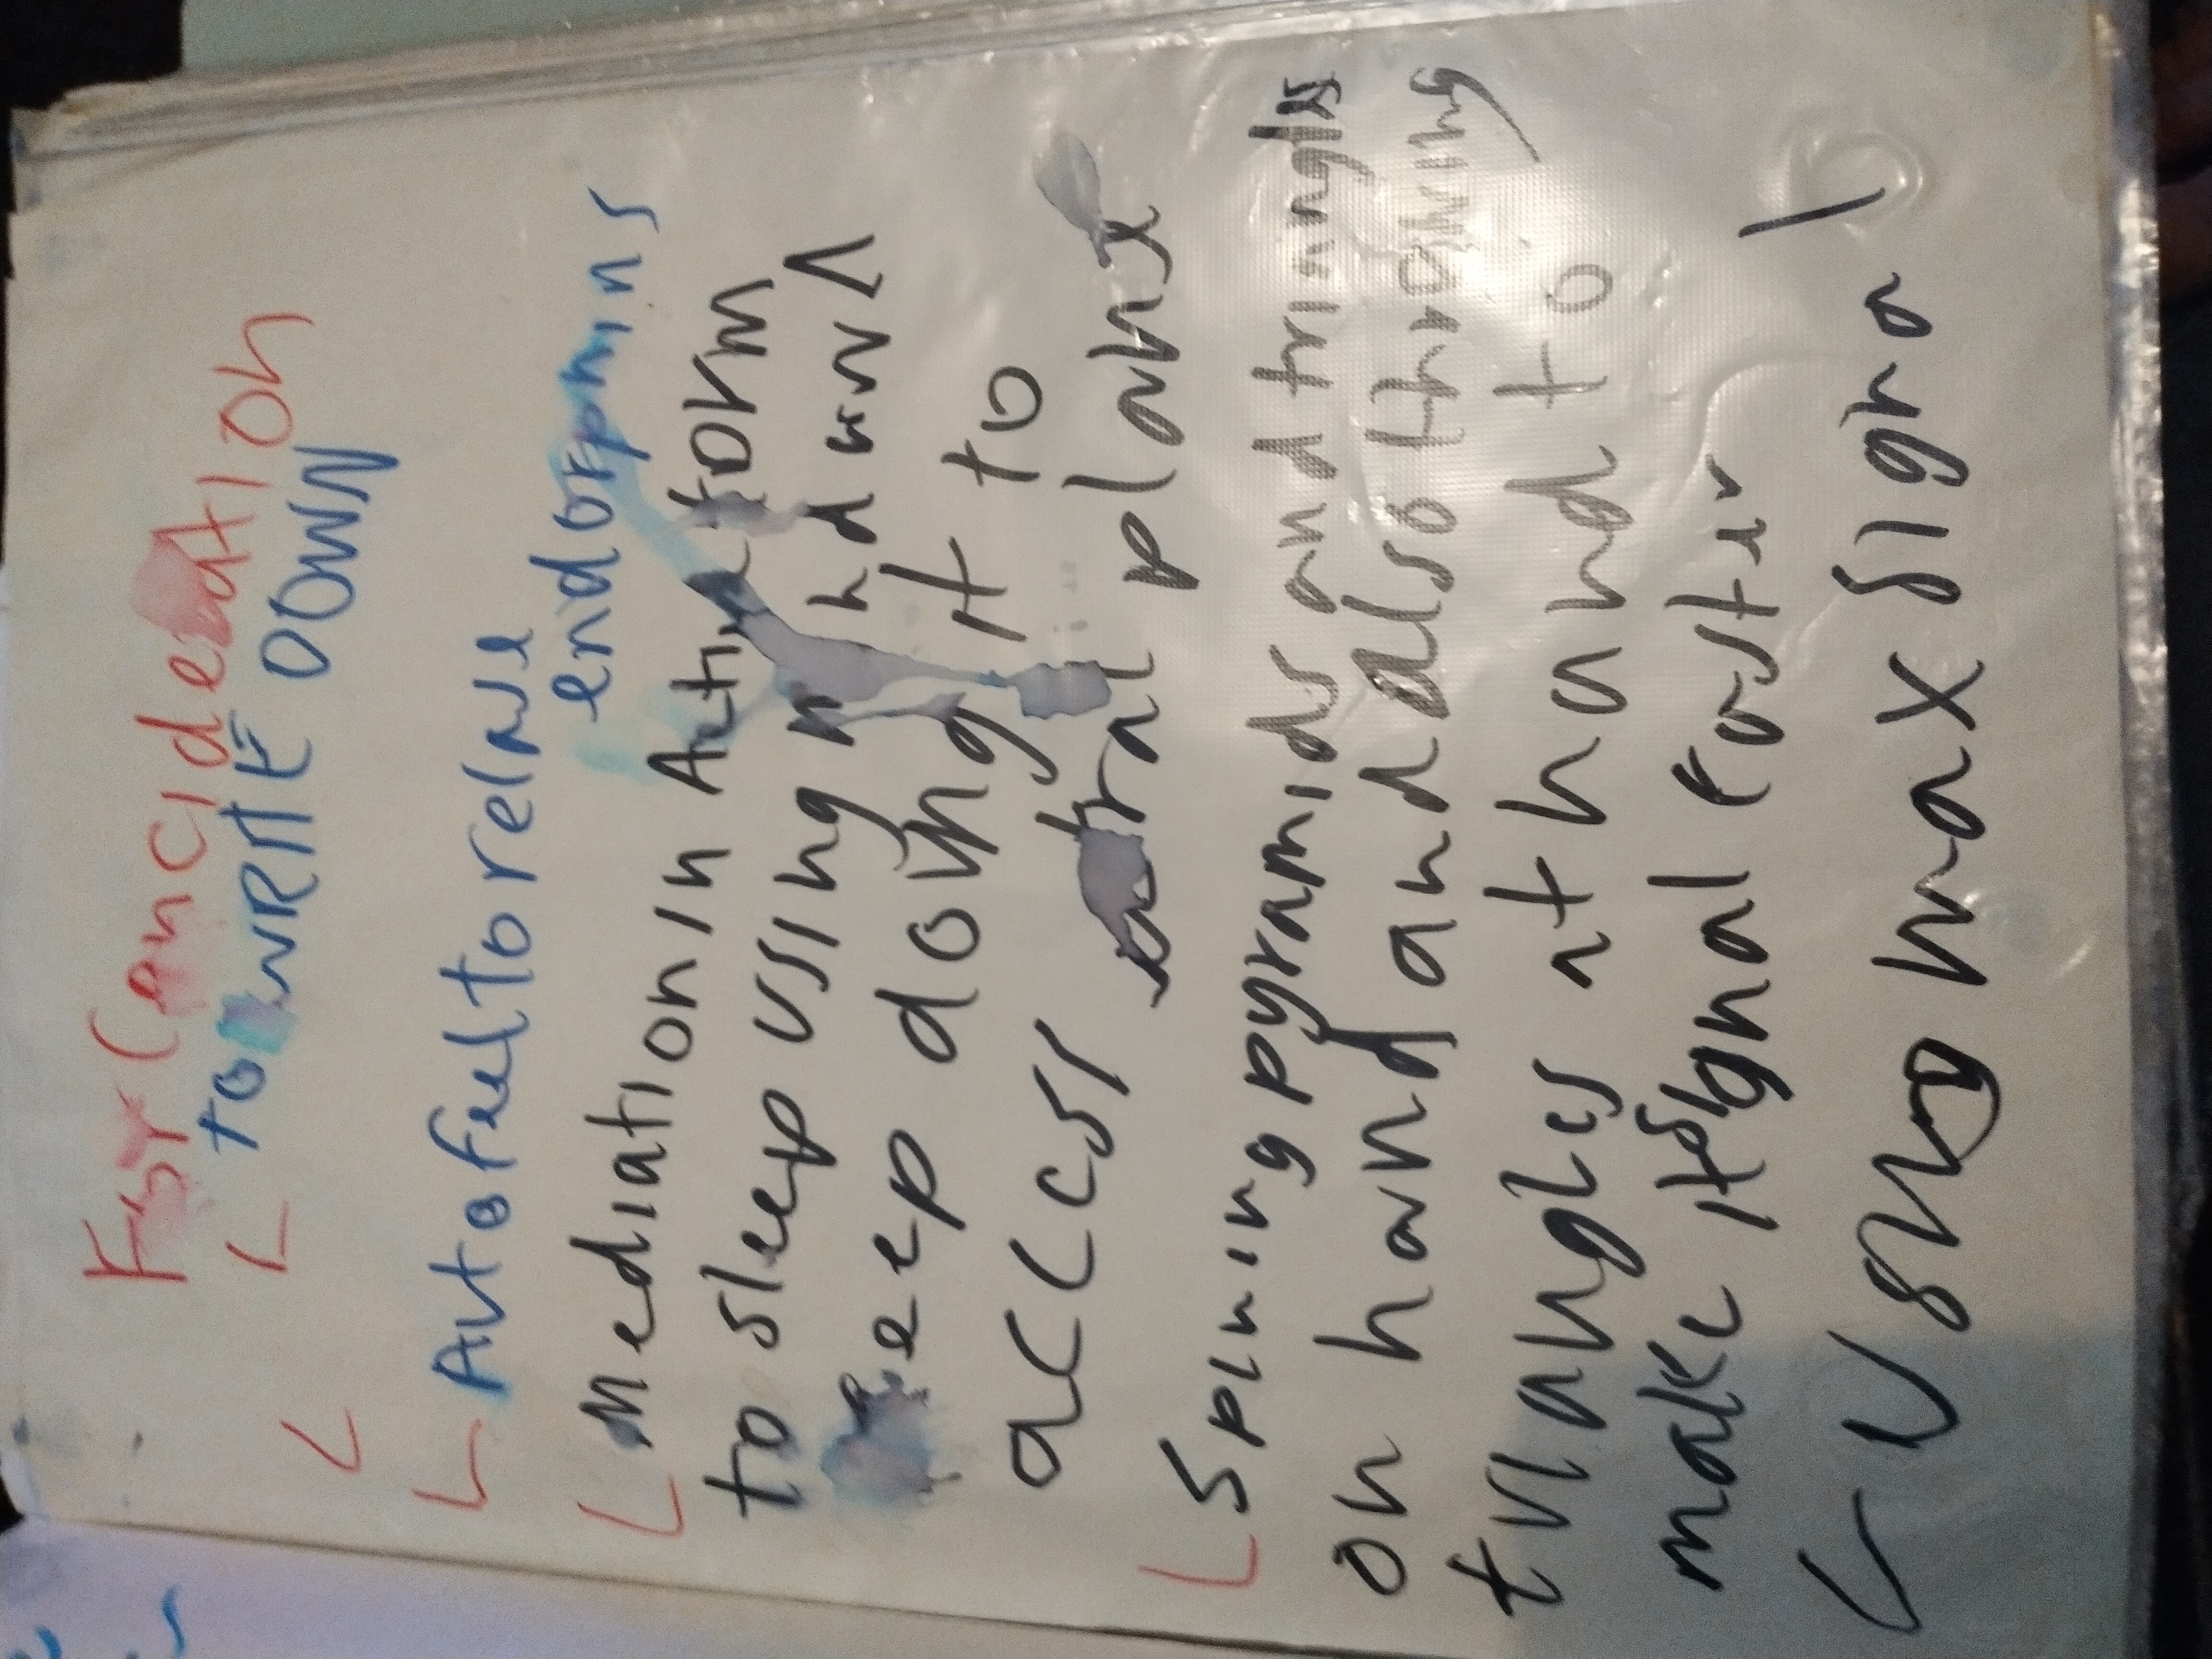 For Concideration
to WRITE DOWN
Auto feel to relase
endorphins
mediation in Active form
to sleep using n
eep doing it to
access astral plane
Spining pyramids and triangls
on hand and also throwing
triangles at hand to
make it signal faster
Using max signal